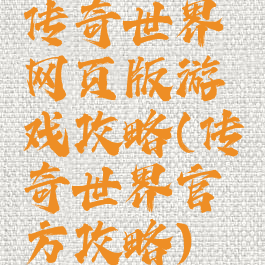 传奇世界
网页版游
戏攻略(传
奇世界官
方攻略)